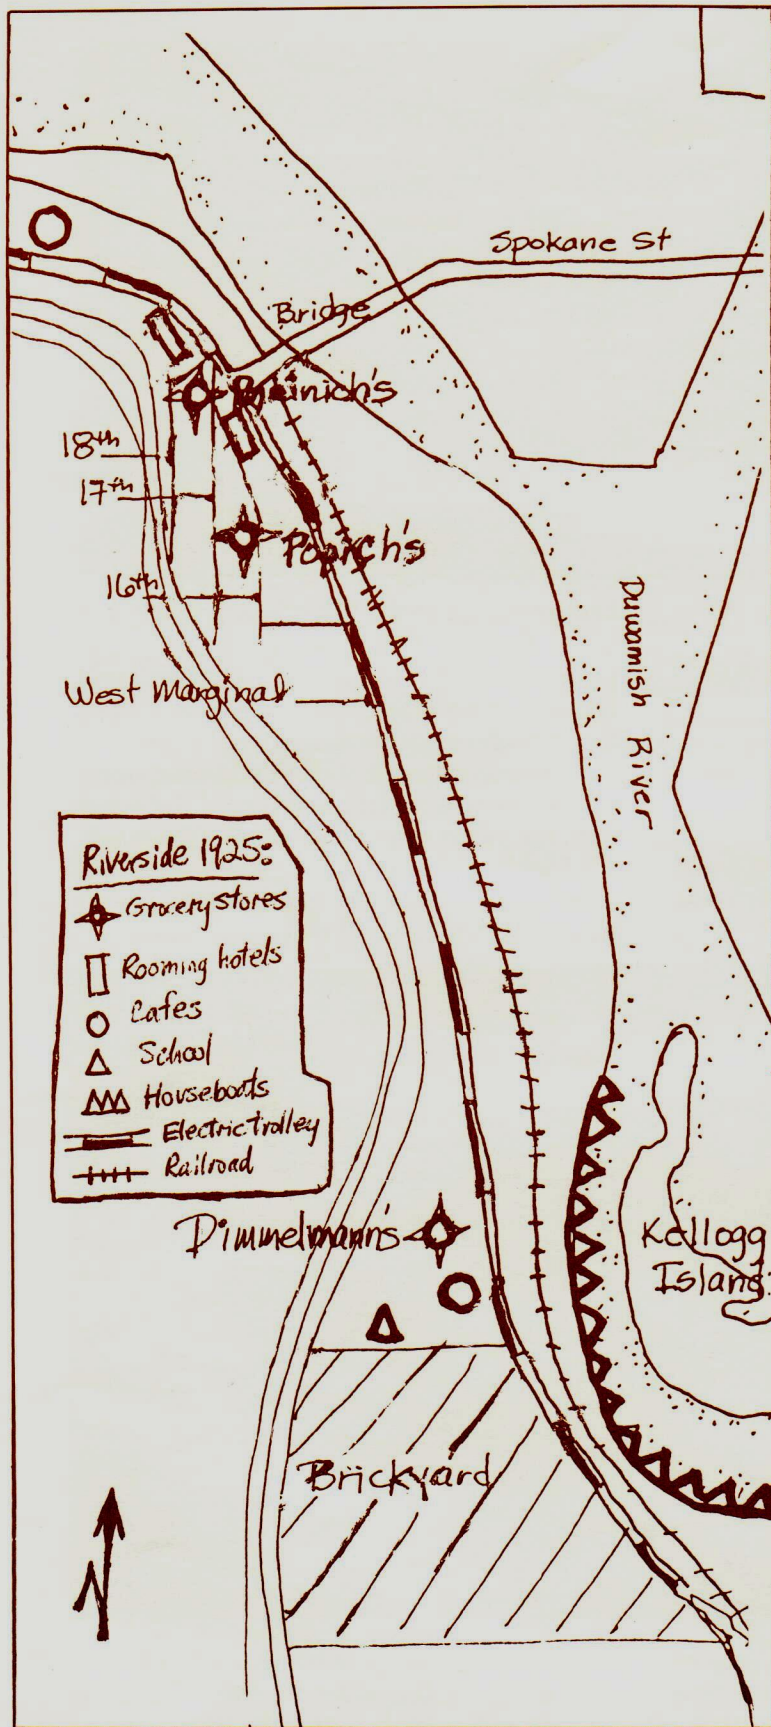 Spokane St
Bridge
18th
17th
Popich's
16th
Duwamish River
West Marginal
Riverside 1925:
Grocery stores
Rooming hotels
Cafes
School
Houseboats
Electric trolley
Railroad
Dimmelmann's
Kellogg
Island
Brickyard
N